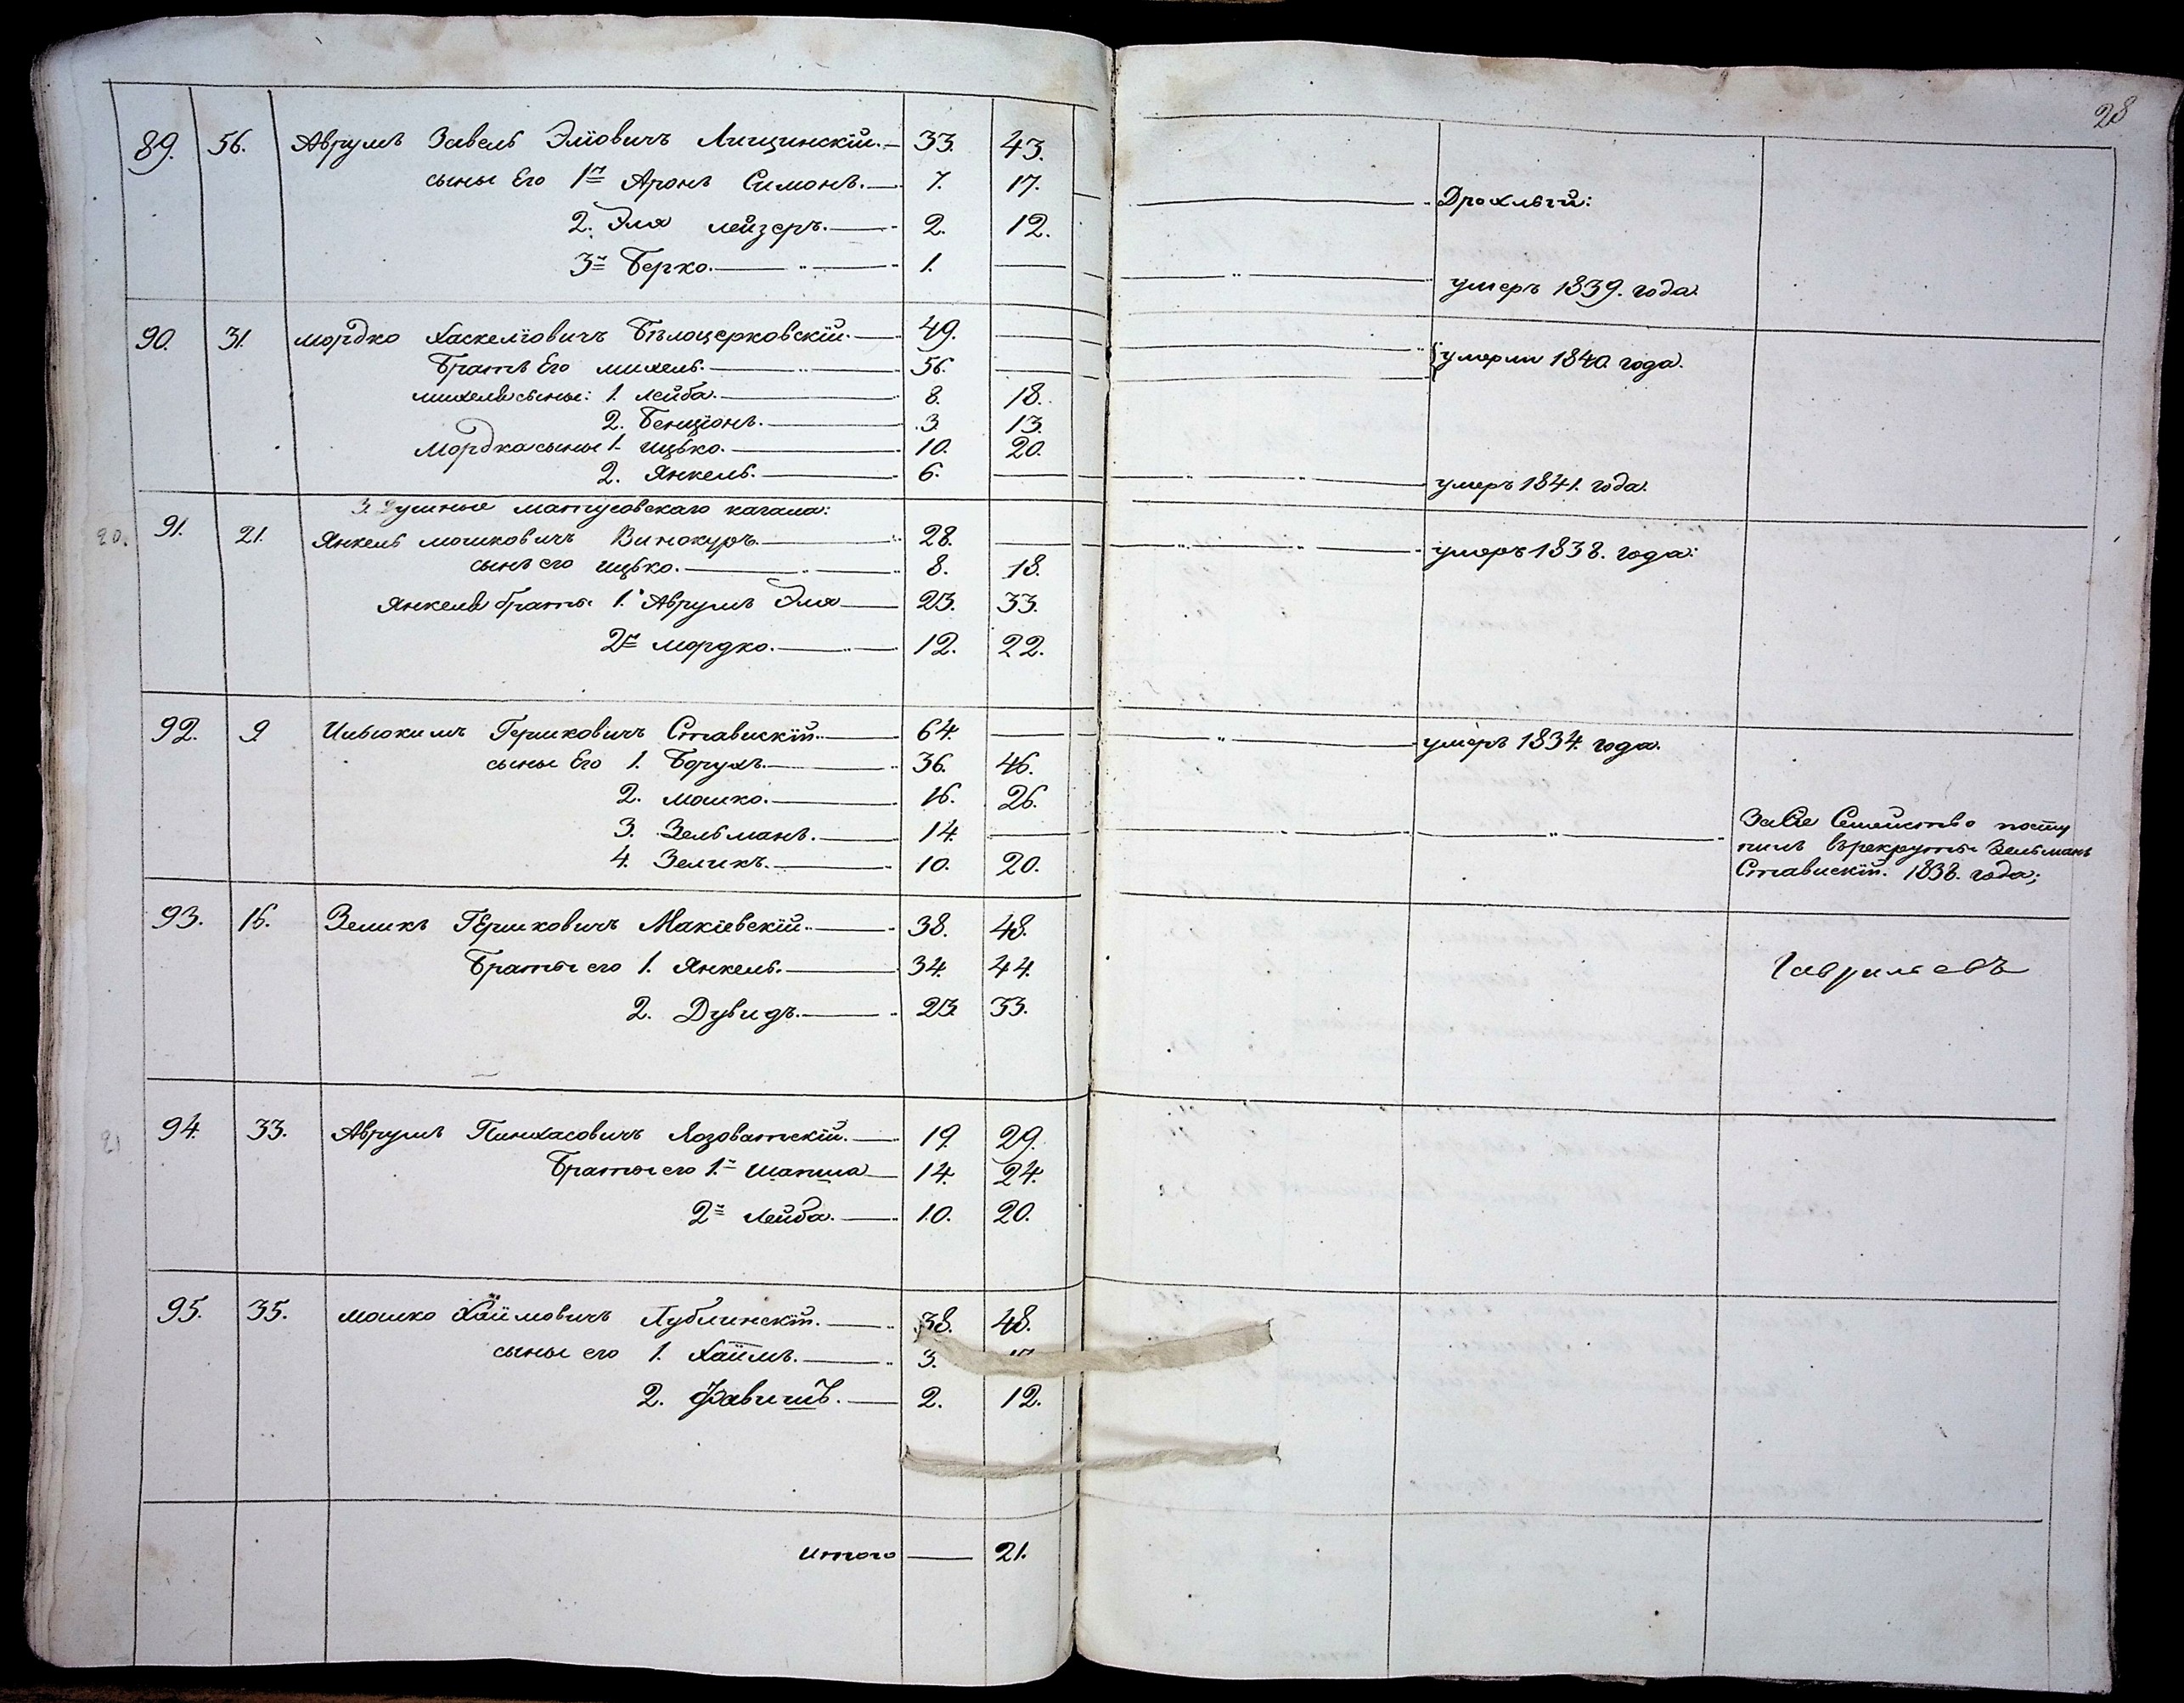 28
89. 56. Аврумъ Завель Эліовичъ Лищинскій. 33. 43.
сыны Его 1й Аронъ Симонъ. 7. 17. Дряхлый:
2. Эля лейзеръ. 2. 12.
3й Берко. 1. умеръ 1839. года.
90. 31. Мордко Хаскеліовичъ Бѣлоцерковскій. 49. умерли 1840. года.
Братъ Его михель. 56.
михеля сыны: 1. Лейба. 8. 18.
2. Бенціонъ. 3. 13.
Мордка сыны 1. ицько. 10. 20.
2. Янкель. 6. умеръ 1841. года.
3. Душные матусовскаго кагала:
20. 91. 21. Янкель мошковичъ Винокуръ. 28. умеръ 1838. года:
сынъ его ицько. 8. 18.
Янкеля браты 1. Аврумъ Эля 23. 33.
2й мордко. 12. 22.
92. 9. Ильюкимъ Гершковичъ Ставискій. 64. умеръ 1834. года.
сыны Его 1. Борухъ. 36. 46.
2. мошко. 16. 26.
3. Зельманъ. 14. За Сіе Семейство посту
пилъ въ рекруты Зельманъ
4. Зеликъ. 10. 20. Ставискій. 1838. года;
93. 16. Зеликъ Гершковичъ Макіевскій. 38. 48.
Браты его 1. Янкель. 34. 44. Гаврильевъ
2. Дувидъ. 23. 33.
21 94. 33. Аврумъ Пинхасовичъ Лозоватскій. 19. 29.
Браты его 1й Шапша 14. 24.
2й Лейба. 10. 20.
95. 35. мошко Хаимовичъ Лублинскій. 38. 48.
сыны его 1. Хаимъ. 3.
2. Фавишъ. 2. 12.
итого 21.